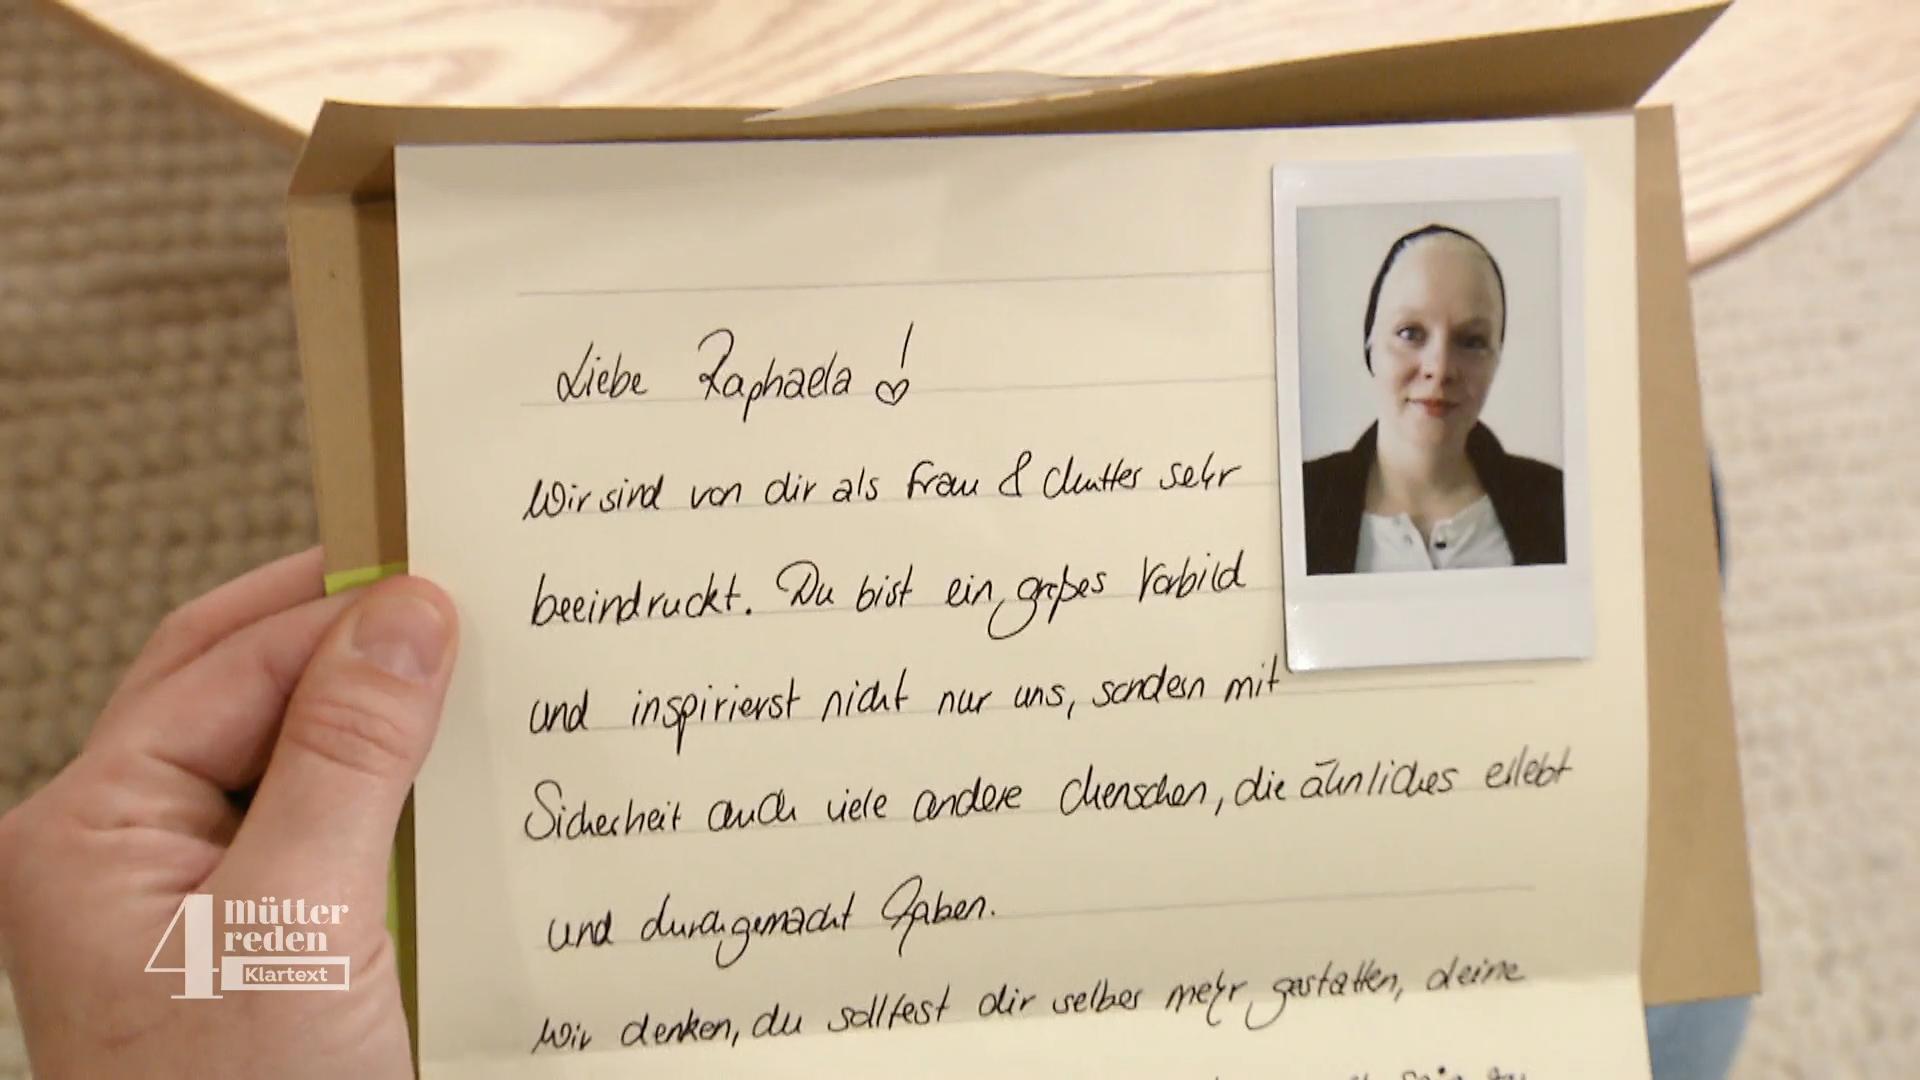 Liebe Raphaela!
Wir sind von dir als Frau & Mutter sehr
beeindruckt. Du bist ein großes Vorbild
und inspirierst nicht nur uns, sondern mit
Sicherheit auch viele andere Menschen, die ähnliches erlebt
und durchgemacht haben.
Wir denken, du solltest dir selber mehr gestatten, deine
4 mütter
reden
Klartext